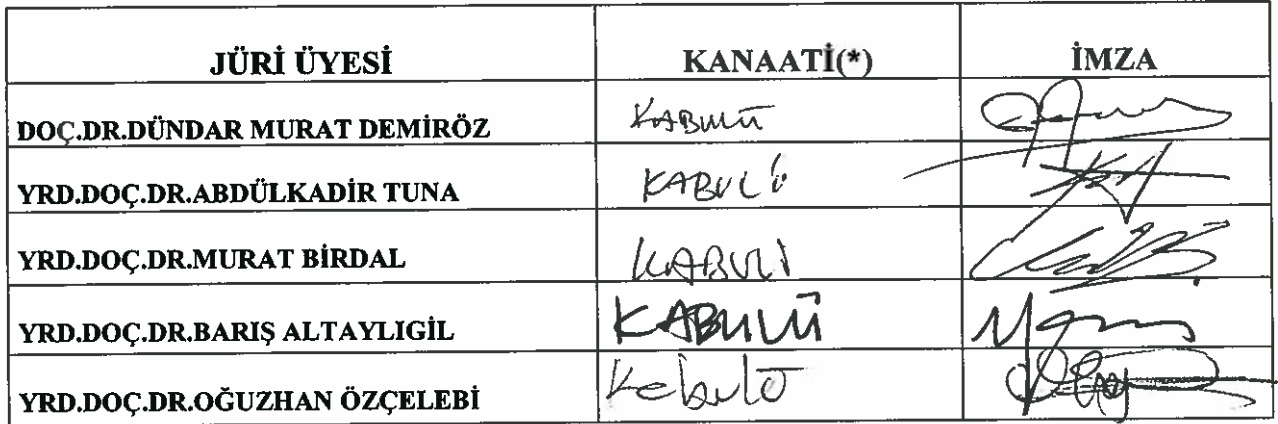 JÜRİ ÜYESİ KANAATİ(*) İMZA
DOÇ.DR.DÜNDAR MURAT DEMİRÖZ KABULÜ
YRD.DOÇ.DR.ABDÜLKADİR TUNA KABULÜ
YRD.DOÇ.DR.MURAT BİRDAL KABULÜ
YRD.DOÇ.DR.BARIŞ ALTAYLIGİL KABULÜ
YRD.DOÇ.DR.OĞUZHAN ÖZÇELEBİ Kabulü